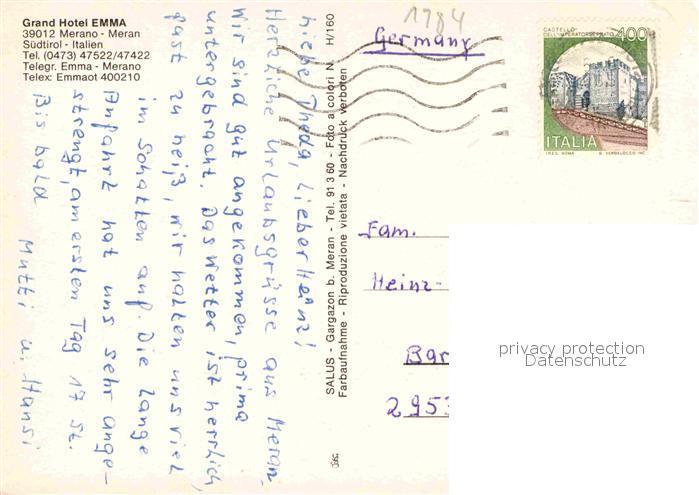 Grand Hotel EMMA
39012 Merano - Meran
Südtirol - Italien
Tel. (0473) 47522/47422
Telegr. Emma - Merano
Telex: Emmaot 400210
Liebe Theda, Lieber Heinz!
Herzliche Urlaubsgrüsse aus Meran.
Wir sind gut angekommen, prima
untergebracht. Das Wetter ist herrlich,
fast zu heiß, wir halten uns viel
im Schatten auf. Die lange
Anfahrt hat uns sehr ange-
strengt, am ersten Tag 17 St.
Bis bald
Mutti u. Hansi
SALUS - Gargazon b. Meran - Tel. 91 3 60 - Foto a colori N. H/160
Farbaufnahme - Riproduzione vietata - Nachdruck verboten
1984
Germany
CASTELLO
DELL'IMPERATORE PRATO
400
ITALIA
I.P.Z.S. ROMA
Fam.
Heinz-
Bar
2953
privacy protection
Datenschutz